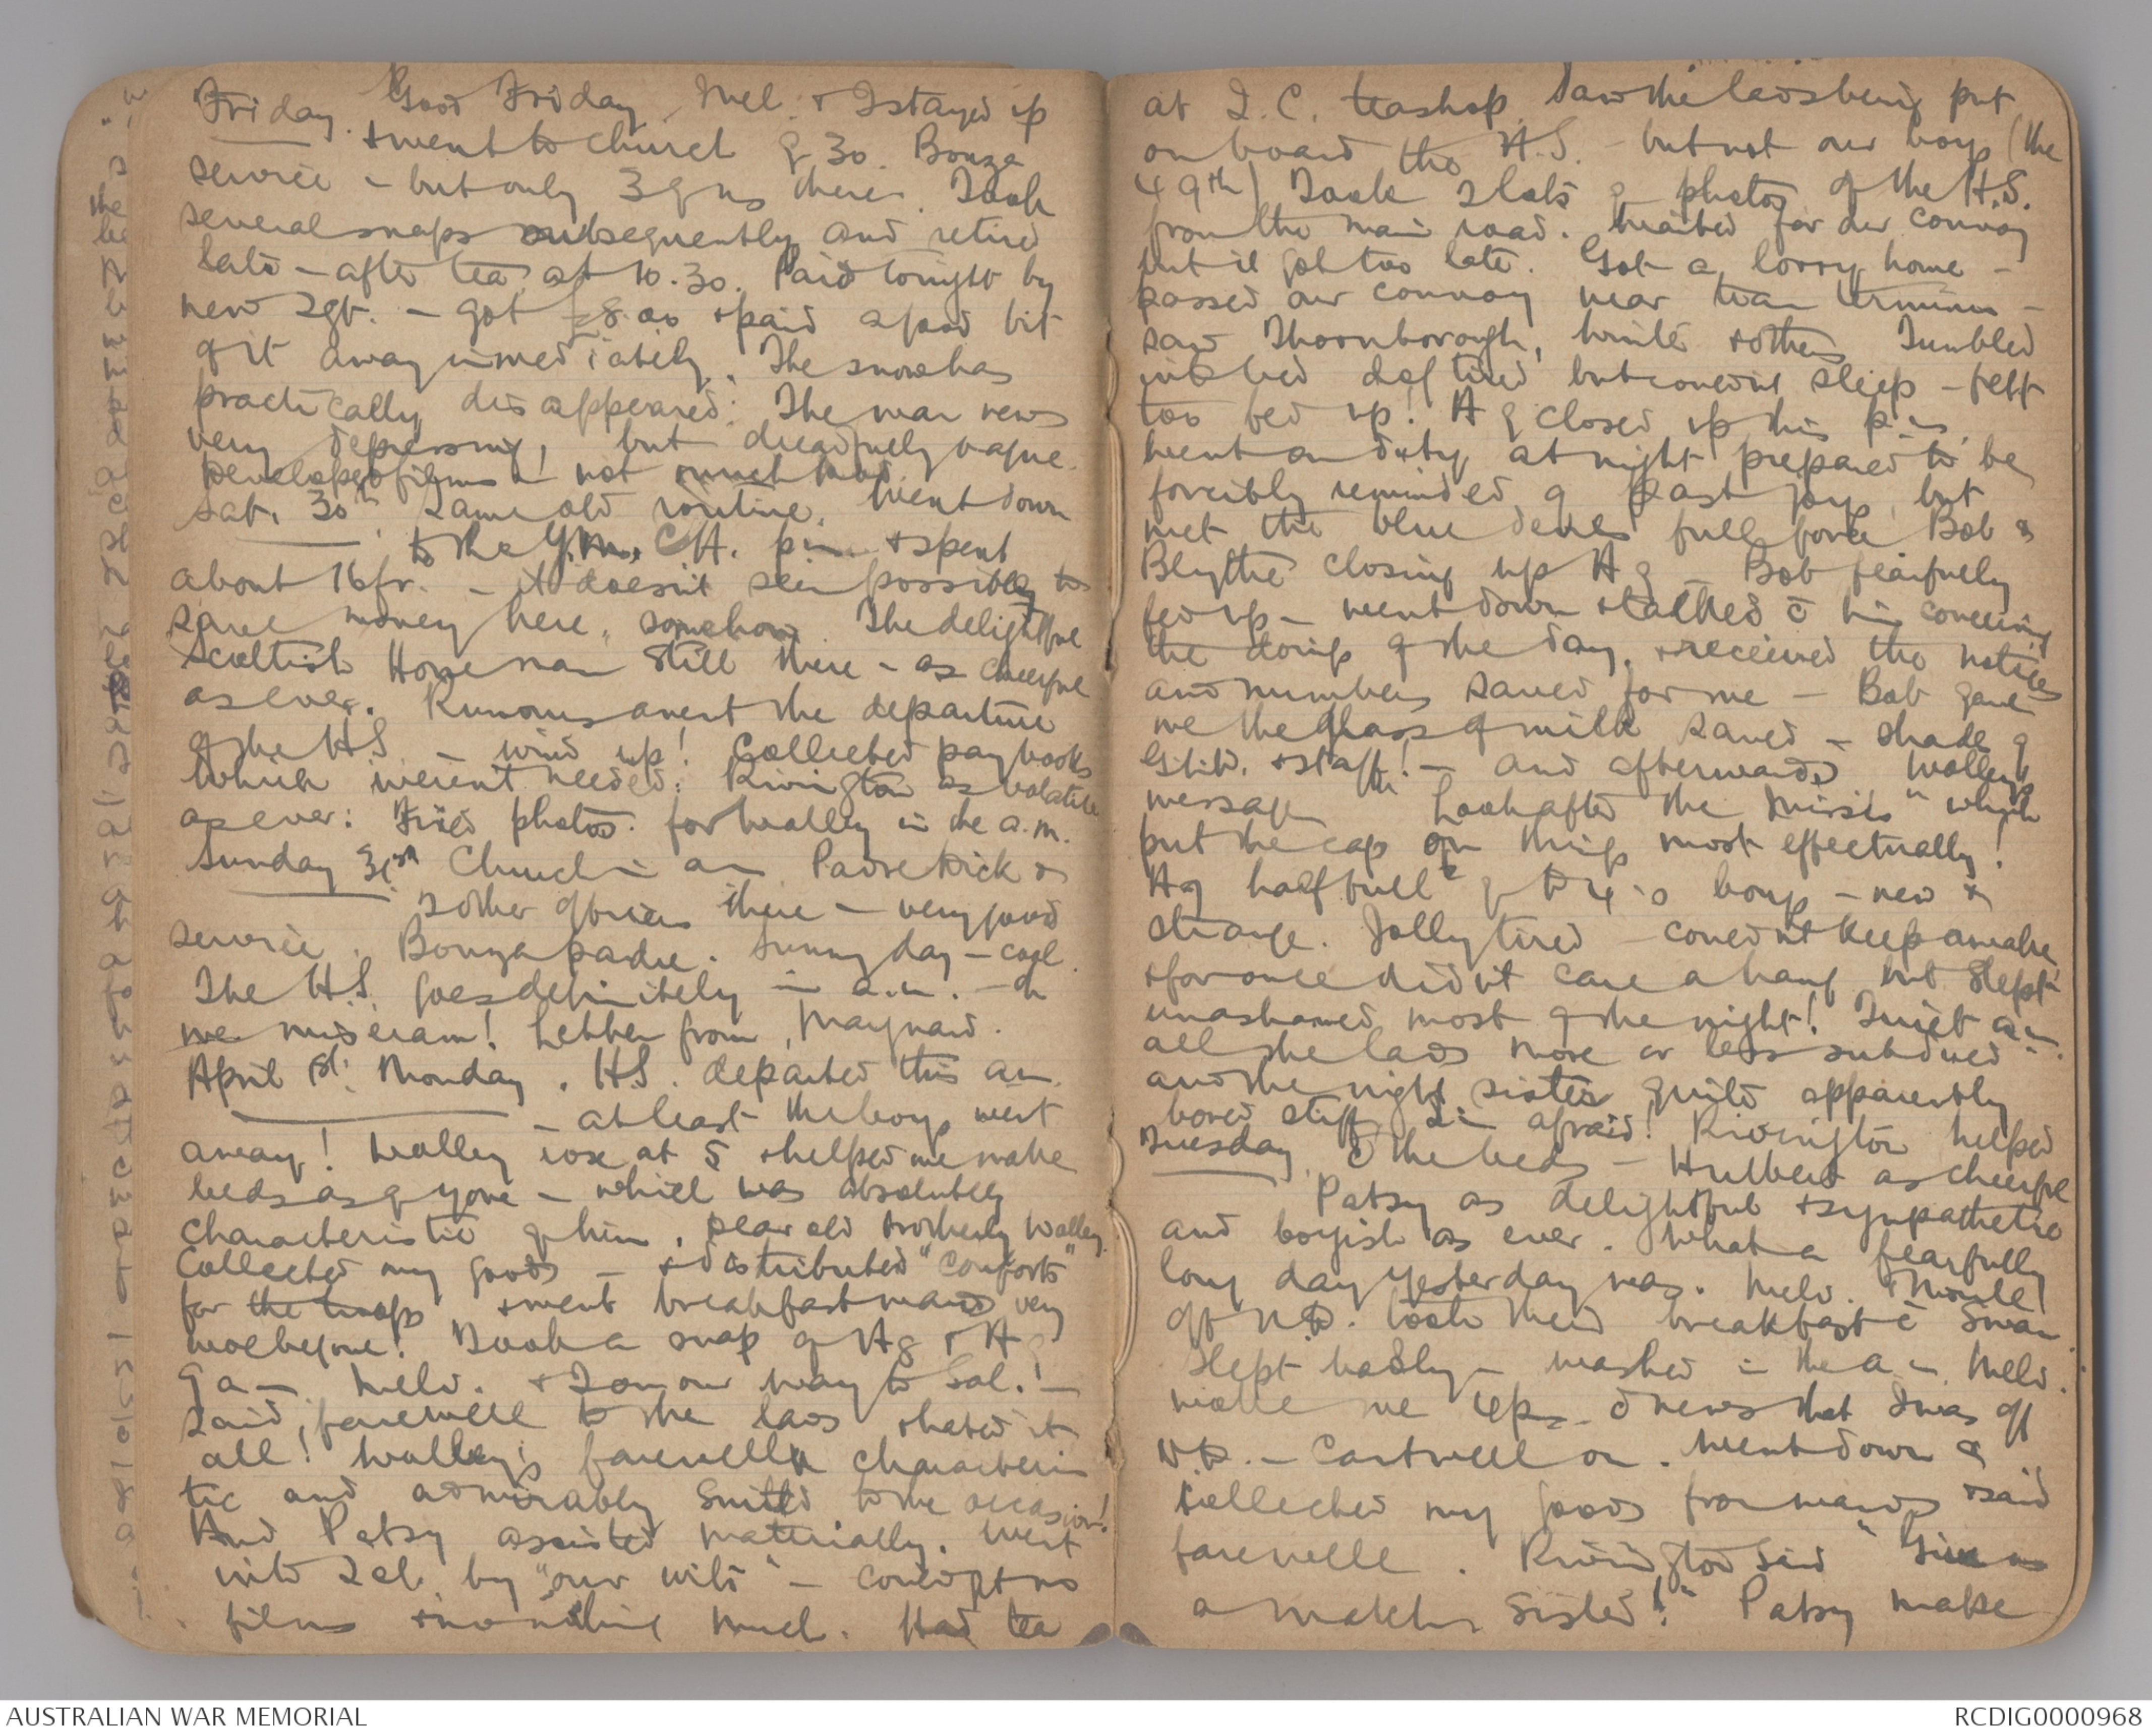 Friday. Good Friday. Mel. & I stayed up
& went to church 9.30. Bonza
service - but only 3 of us there. Took
several snaps subsequently and retired
late - after tea at 10.30. Paid tonight by
new Sgt. - got £8.00 & paid a good bit
of it away immediately. The snow has
practically disappeared. The war news
very depressing, but dreadfully vague.
Developed films - not much
Sat. 30th Same old routine. Went down
to the Y.M.C.A. & spent
about 16fr. - it doesn't seem possible to
save money here, somehow. The delightful
Scottish Horseman still there - as cheerful
as ever. Rumours anent the departure
of the H.S - wind up! Collected pay books
which weren't needed. Rivington as volatile
as ever: Fixed photos. for Walley in the a.m.
Sunday 31st Church in am Padre Kick &
2 other officers there - very good
service. Bonza padre. Sunny day - cool.
The H.S. goes definitely in a.m. - oh
me miseram! Letter from Maynard.
April 1st. Monday. H.S. departed this am.
- at least the boys went
away! Walley rose at 5 & helped me make
beds as of yore - which was absolutely
characteristic of him, dear old brotherly Walley.
Collected my goods - & distributed "Comforts"
for the troops & went breakfastward very
woebegone! Took a snap of A8 & A9
9 am Melv. & I on our way to Sal.! -
Said farewell to the lads & hated it
all! Walley's farewell characteris
tic and admirably suited to the occasion!
And Patsy assisted materially. Went
into Sal. by "our wits" - could get no
films & nothing much. Had tea
at I.C. teashop. Saw the lads being put
on board the H.S. - but not our boys (the
49th) Took 2 lots of photos of the H.S.
from the main road. Waited for our convoy
but it got too late. Got a lorry home -
passed our convoy near tram terminus -
saw Thornborough, & others. Tumbled
into bed dog tired but couldnt sleep - felt
too fed up! A9 closed up this p.m.
Went on duty at night prepared to be
forcibly reminded of past joys, but
met the blue devils full force Bob &
Blythe closing up A9 - Bob fearfully
fed up - went down & talked c̄ him concerning
the doings of the day, & received the notices
and numbers saved for me - Bob gave
me the glass of milk saved - shade of
& staff! - and afterwards Walley's
message "Look after the Missis" which
put the cap on things most effectually!
A9 half full of boys - new &
strange. Jolly tired couldn't keep awake
& for once didn't care a hang but slept
unashamed most of the night! Quiet am.
all the lads more or less subdued
and the night sister quite apparently
bored stiff I'm afraid! Rivington helped
Tuesday c̄ the beds - Hulbert as cheerful
Patsy as delightful & sympathetic
and boyish as ever. What a fearfully
long day yesterday was. Melv. &
off N.D. took their breakfast c̄ Swan
Slept badly - washed in the a.m. Melv.
woke me up c̄ news that I was off
N.D. - Cartwell on. Went down &
collected my goods from wards & said
farewells. Rivington said "Give us
a match Sister!" Patsy make
AUSTRALIAN WAR MEMORIAL
RCDIG0000968